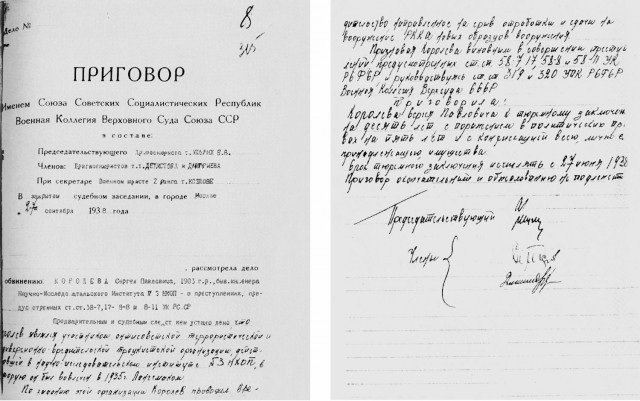 Дело №
8
ПРИГОВОР
Именем Союза Советских Социалистических Республик
Военная Коллегия Верховного Суда Союза ССР
в составе:
Председательствующего
Членов: Бригвоенюристов т.т.
При секретаре Военном юристе 2 ранга т.
В закрытом судебном заседании, в городе Москве
27 сентября 1938 года
, рассмотрела дело
обвинению: КОРОЛЕВА Сергея Павловича, 1903 г.р., быв. инженера
Научно-Исследовательского Института № 3 НКОП - в преступлениях, пре-
дусмотренных ст.ст. 58-7, 17- 8-8 и 8-11 УК РСФСР
Предварительным и судебным следствием установлено, что
Королев являлся участником антисоветской террористической и
диверсионно-вредительской троцкистской организации, дейст-
вовавшей в научно-исследовательском институте №3 НКОП, в
которую он был вовлечен в 1935 г. Лангемаком.
По заданию этой организации Королев проводил вре-
дительство направленное на срыв отработки и сдачи на
вооружение РККА новых образцов вооружения.
Признавая Королева виновным в совершении преступ-
лений предусмотренных ст.ст. 58-7, 17, 58-8 и 58-11 УК
РСФСР и руководствуясь ст.ст 319 и 320 УПК РСФСР
Военная Коллегия Верхсуда СССР
Приговорила:
Королева Сергея Павловича к тюремному заключению
на десять лет с поражением в политических пра-
вах на пять лет и с конфискацией всего, лично ему
принадлежащего имущества.
Срок тюремного заключения исчислять с 27 июня 1938
Приговор окончательный и обжалованию не подлежит
Председательствующий
Члены